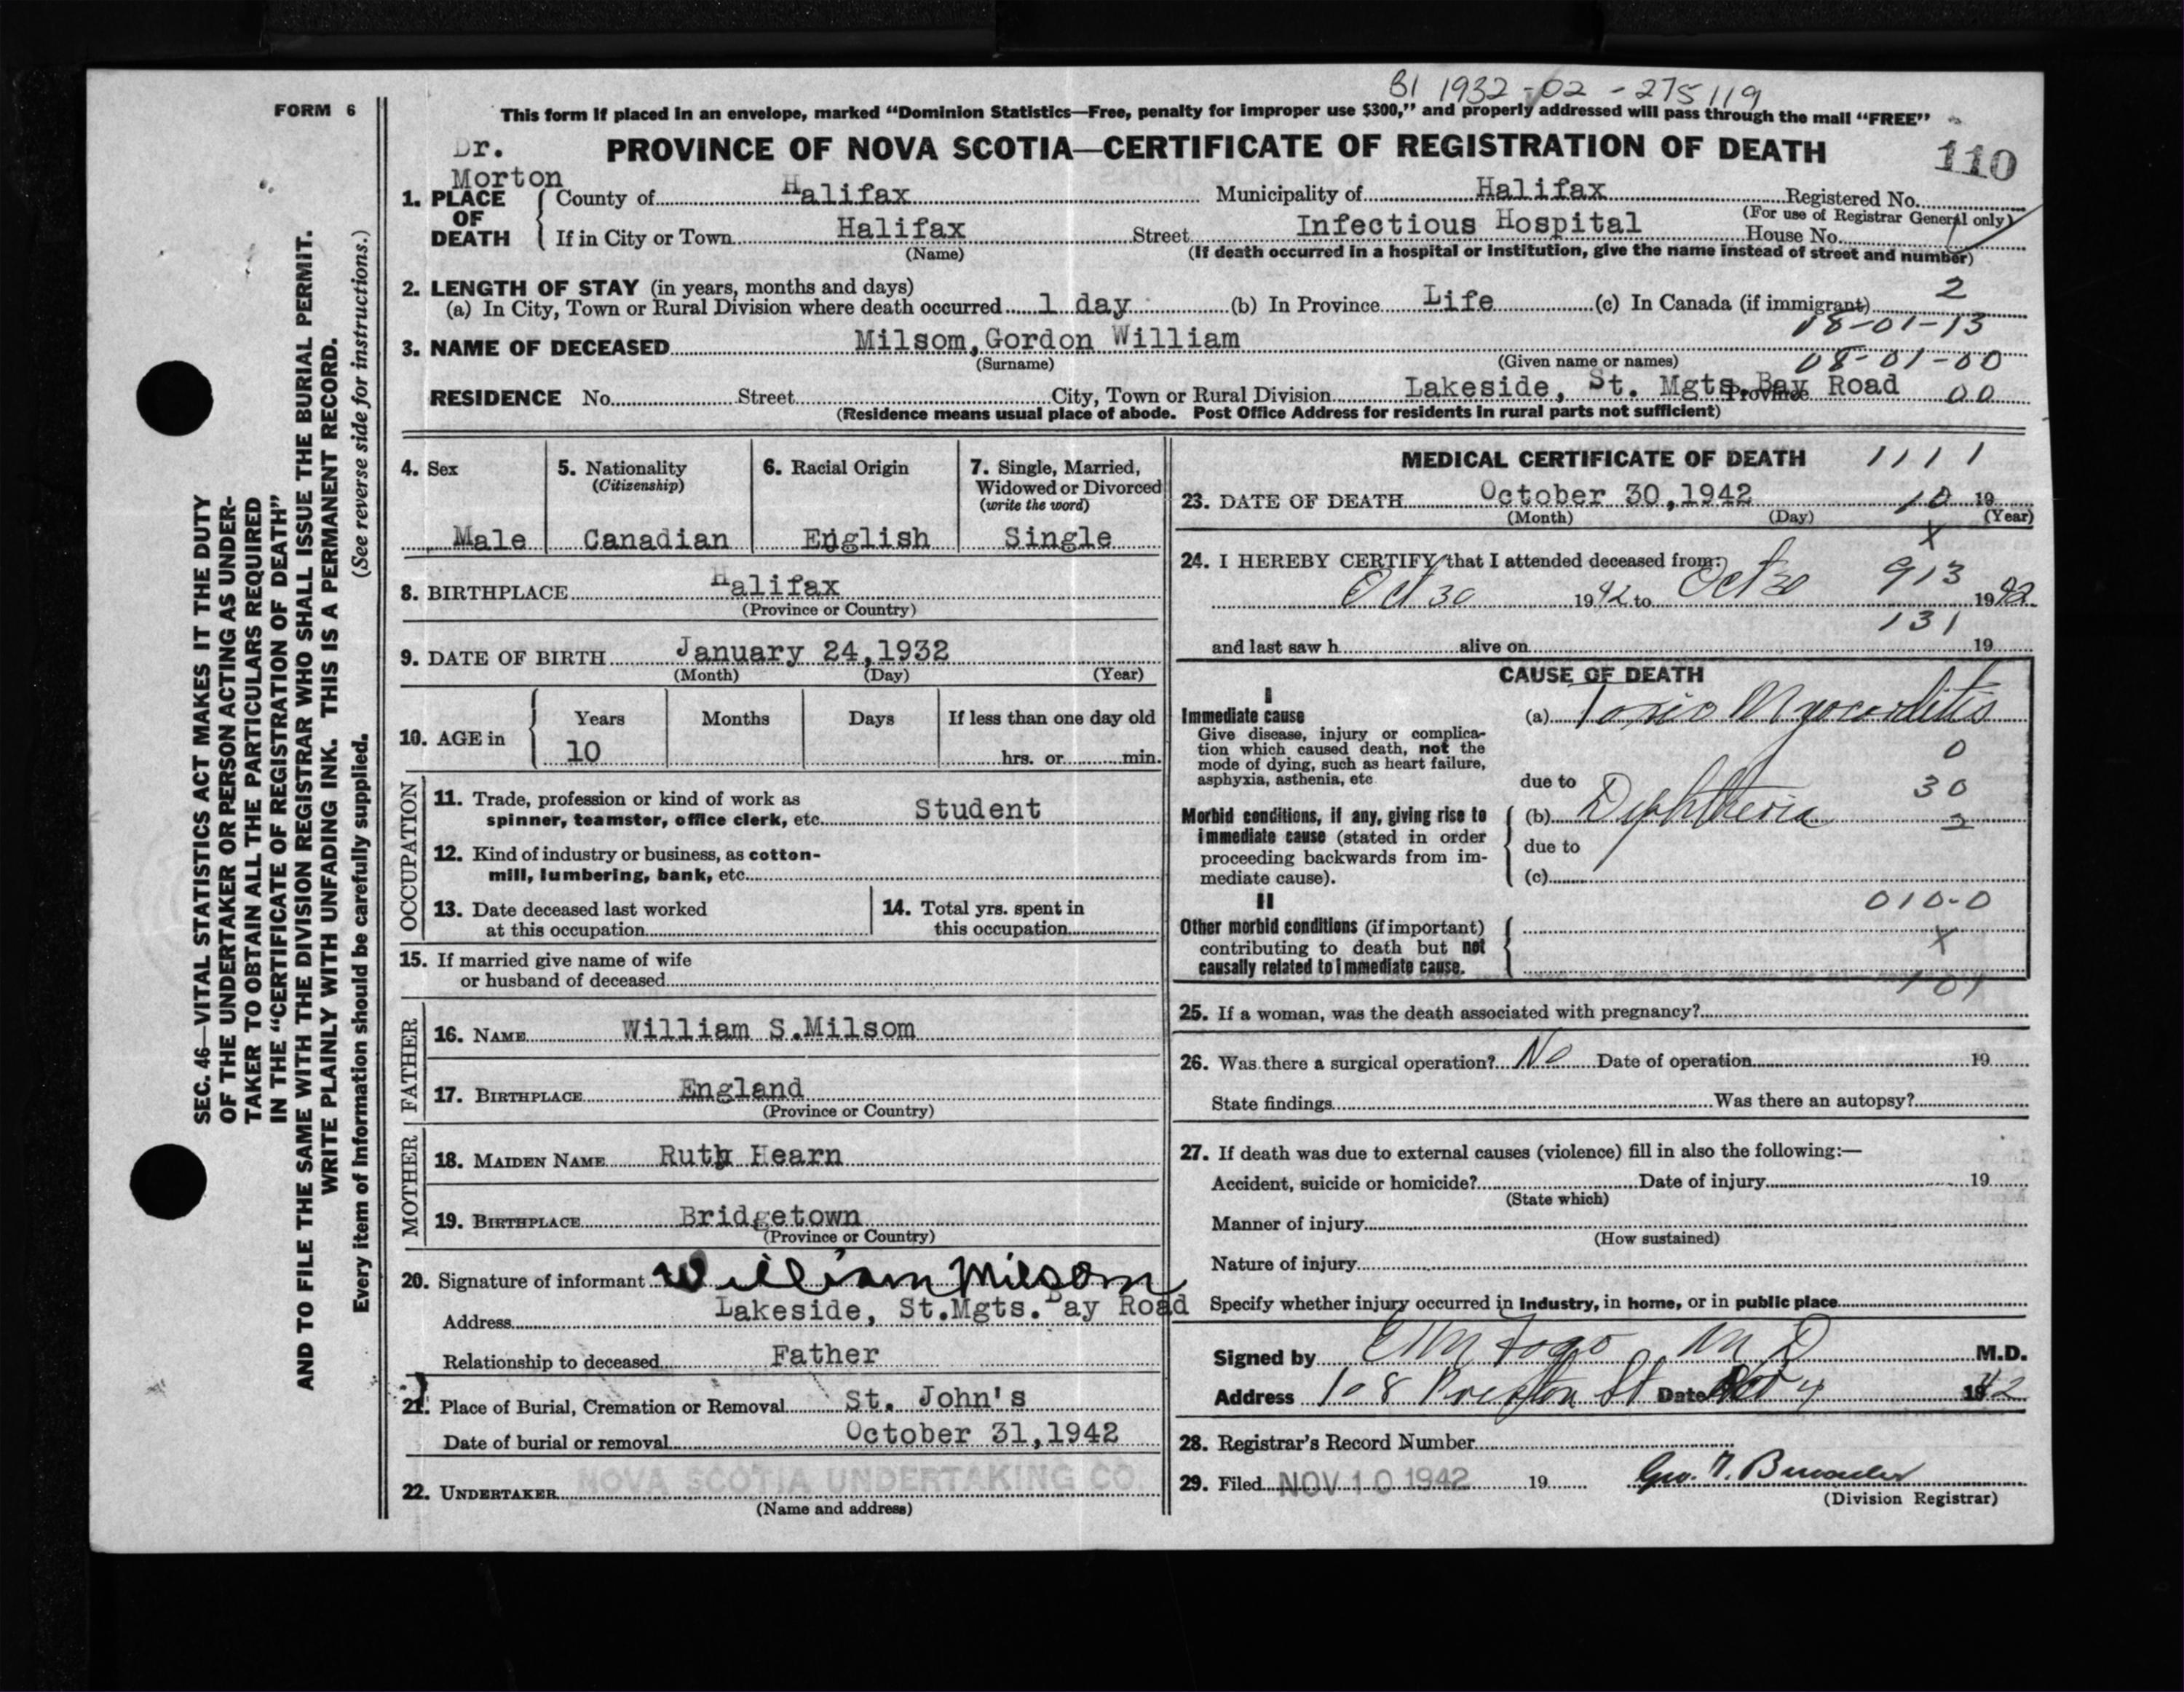 FORM 6
SEC. 46—VITAL STATISTICS ACT MAKES IT THE DUTY
OF THE UNDERTAKER OR PERSON ACTING AS UNDER-
TAKER TO OBTAIN ALL THE PARTICULARS REQUIRED
IN THE "CERTIFICATE OF REGISTRATION OF DEATH"
AND TO FILE THE SAME WITH THE DIVISION REGISTRAR WHO SHALL ISSUE THE BURIAL PERMIT.
WRITE PLAINLY WITH UNFADING INK. THIS IS A PERMANENT RECORD.
Every item of information should be carefully supplied. (See reverse side for instructions.)
B1 1932-02-275119
This form if placed in an envelope, marked "Dominion Statistics—Free, penalty for improper use $300," and properly addressed will pass through the mail "FREE"
Dr. Morton
PROVINCE OF NOVA SCOTIA—CERTIFICATE OF REGISTRATION OF DEATH 110
1. PLACE OF DEATH County of Halifax Municipality of Halifax Registered No.
(For use of Registrar General only)
If in City or Town Halifax Street Infectious Hospital House No.
(Name) (If death occurred in a hospital or institution, give the name instead of street and number)
2. LENGTH OF STAY (in years, months and days) 2
(a) In City, Town or Rural Division where death occurred 1 day (b) In Province Life (c) In Canada (if immigrant)
18-01-13
3. NAME OF DECEASED Milsom, Gordon William
(Surname) (Given name or names) 08-01-00
RESIDENCE No. Street City, Town or Rural Division Lakeside, St. Mgts. Bay Road Province 00
(Residence means usual place of abode. Post Office Address for residents in rural parts not sufficient)
4. Sex Male
5. Nationality (Citizenship) Canadian
6. Racial Origin English
7. Single, Married, Widowed or Divorced (write the word) Single
8. BIRTHPLACE Halifax
(Province or Country)
9. DATE OF BIRTH January 24, 1932
(Month) (Day) (Year)
10. AGE in Years Months Days If less than one day old
10 hrs. or min.
OCCUPATION
11. Trade, profession or kind of work as
spinner, teamster, office clerk, etc. Student
12. Kind of industry or business, as cotton-
mill, lumbering, bank, etc.
13. Date deceased last worked
at this occupation
14. Total yrs. spent in
this occupation
15. If married give name of wife
or husband of deceased
FATHER
16. NAME William S. Milsom
17. BIRTHPLACE England
(Province or Country)
MOTHER
18. MAIDEN NAME Ruth Hearn
19. BIRTHPLACE Bridgetown
(Province or Country)
20. Signature of informant William Milsom
Address Lakeside, St.Mgts. Bay Road
Relationship to deceased Father
21. Place of Burial, Cremation or Removal St. John's
Date of burial or removal October 31, 1942
22. UNDERTAKER NOVA SCOTIA UNDERTAKING CO
(Name and address)
MEDICAL CERTIFICATE OF DEATH 1111
23. DATE OF DEATH October 30, 1942 10 19
(Month) (Day) (Year)
X
24. I HEREBY CERTIFY that I attended deceased from: 913
Oct 30 1942 to Oct 30 1942
131
and last saw h alive on 19
CAUSE OF DEATH
I
Immediate cause (a) Toxic Myocarditis
Give disease, injury or complica-
tion which caused death, not the
mode of dying, such as heart failure,
asphyxia, asthenia, etc
0
due to 30
Morbid conditions, if any, giving rise to
immediate cause (stated in order
proceeding backwards from im-
mediate cause).
(b) Diphtheria 2
due to
(c)
II 010-0
Other morbid conditions (if important)
contributing to death but not
causally related to immediate cause.
X
101
25. If a woman, was the death associated with pregnancy?
26. Was there a surgical operation? No Date of operation 19
State findings Was there an autopsy?
27. If death was due to external causes (violence) fill in also the following:—
Accident, suicide or homicide? Date of injury 19
(State which)
Manner of injury
(How sustained)
Nature of injury
Specify whether injury occurred in industry, in home, or in public place
Signed by M D M.D.
Address 108 Preston St Date 4 1942
28. Registrar's Record Number
29. Filed NOV 10 1942 19 Geo.
(Division Registrar)